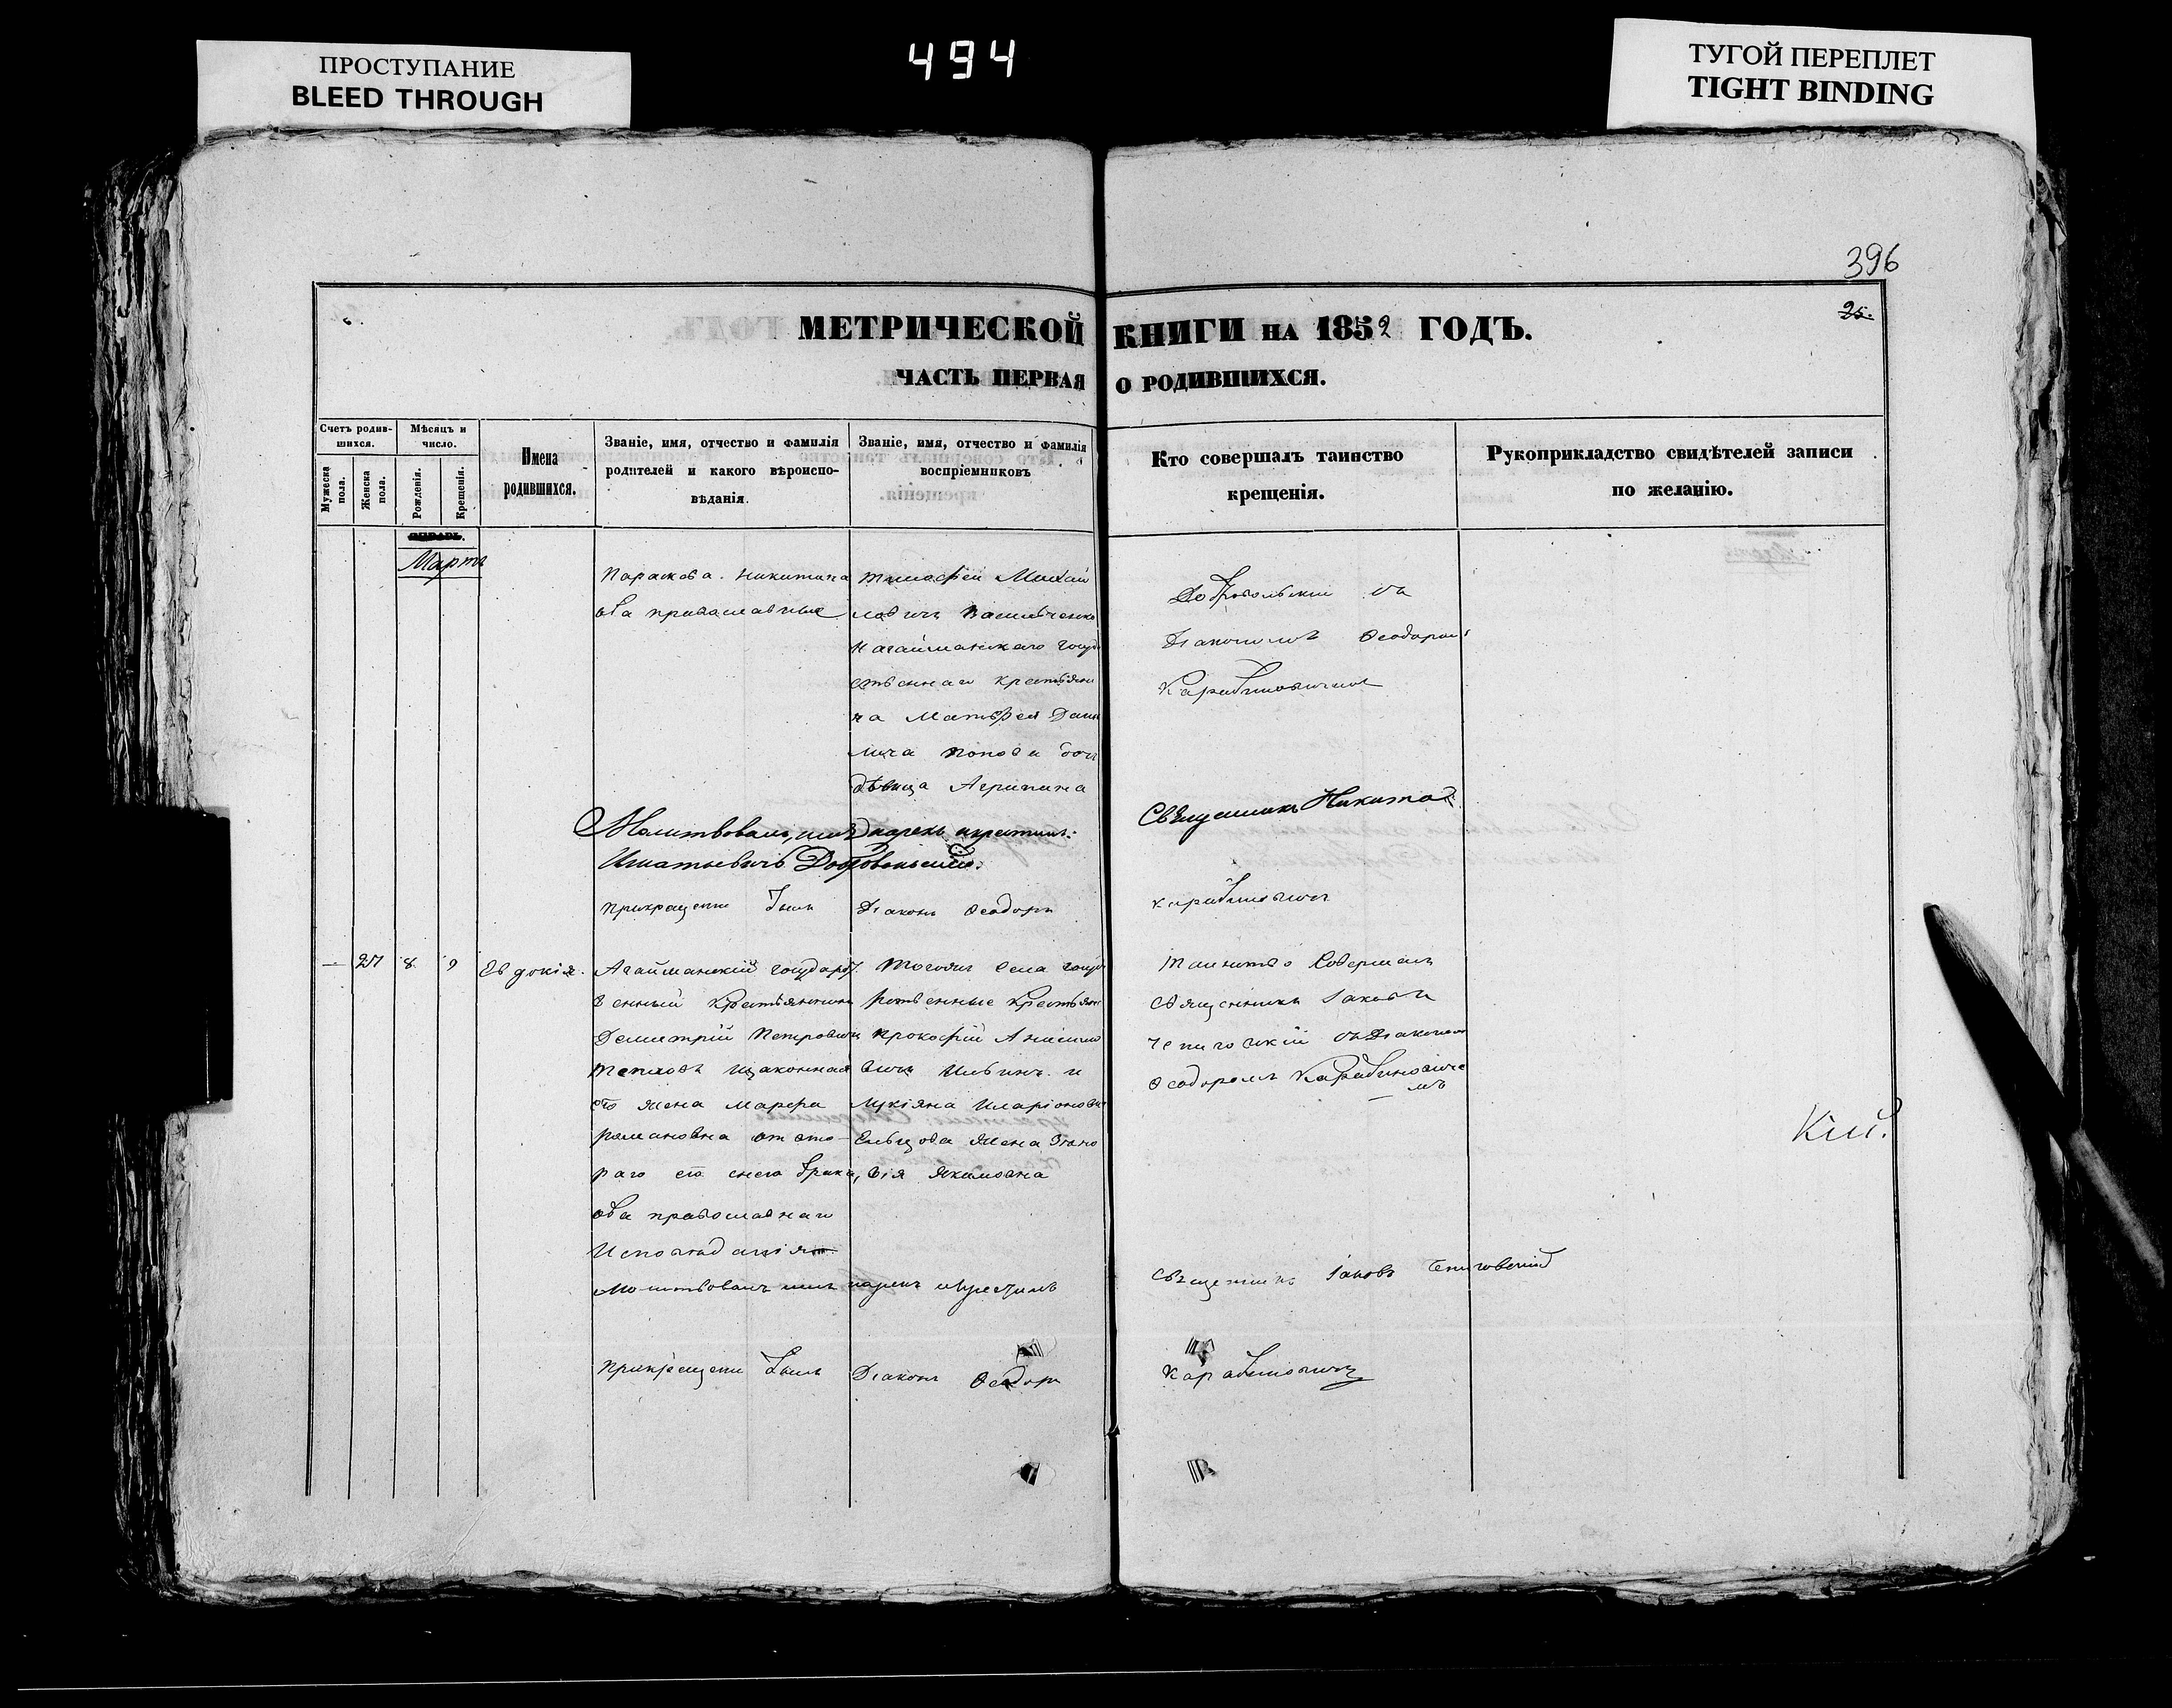 ПРОСТУПАНИЕ
BLEED THROUGH
494
ТУГОЙ ПЕРЕПЛЕТ
TIGHT BINDING
396
25.
МЕТРИЧЕСКОЙ КНИГИ НА 1852 ГОДЪ.
ЧАСТЬ ПЕРВАЯ О РОДИВШИХСЯ.
Счетъ родив-
шихся.
Мужеска
пола.
Женска
пола.
Мѣсяцъ и
число.
Рожденія.
Крещенія.
Имена
родившихся.
Званіе, имя, отчество и фамилія
родителей и какого вѣроиспо-
вѣданія.
Званіе, имя, отчество и фамилія
воспріемниковъ
Кто совершалъ таинство
крещенія.
Рукоприкладство свидѣтелей записи
по желанію.
Мартъ
Параскева Никитина
оба православные
Тимофей Михай
ловичъ
Агайманскаго госуд
ственнаго крестьяни
на Матфея Дани
лича Попова дочь
дѣвица Агрипина
Добровольскій съ
Діакономъ Ѳеодоромъ
Карабиновичемъ
Молитвовалъ, имя нарекъ и крестилъ:
Священникъ Никита
Игнатьевичъ Добровольскій.
При крещеніи былъ Діаконъ Ѳеодоръ
Карабиновичъ
— 27 8 9 Евдокія.
Агайманскій государст
венный крестьянинъ
Демитрій Петровичъ
Тепловъ и законная
его жена Марфа
Романовна отъ вто-
раго его брака,
оба православнаго
исповѣданія
Тогожъ села госуд
рственные крестьяне
Прокофій Анисимо
вичъ Ильинъ и
Лукіяна Иларіонова
жена Зѣно
вія Якимовна
Таинство совершалъ
священникъ Іаковъ
Чепиговскій съ Діакономъ
Ѳеодоромъ Карабиновиче
мъ
Кій.
Молитвовалъ имя нарекъ и крестилъ
Священникъ Іаковъ Чепиговскій
При крещеніи былъ Діаконъ Ѳеодоръ
Карабиновичъ